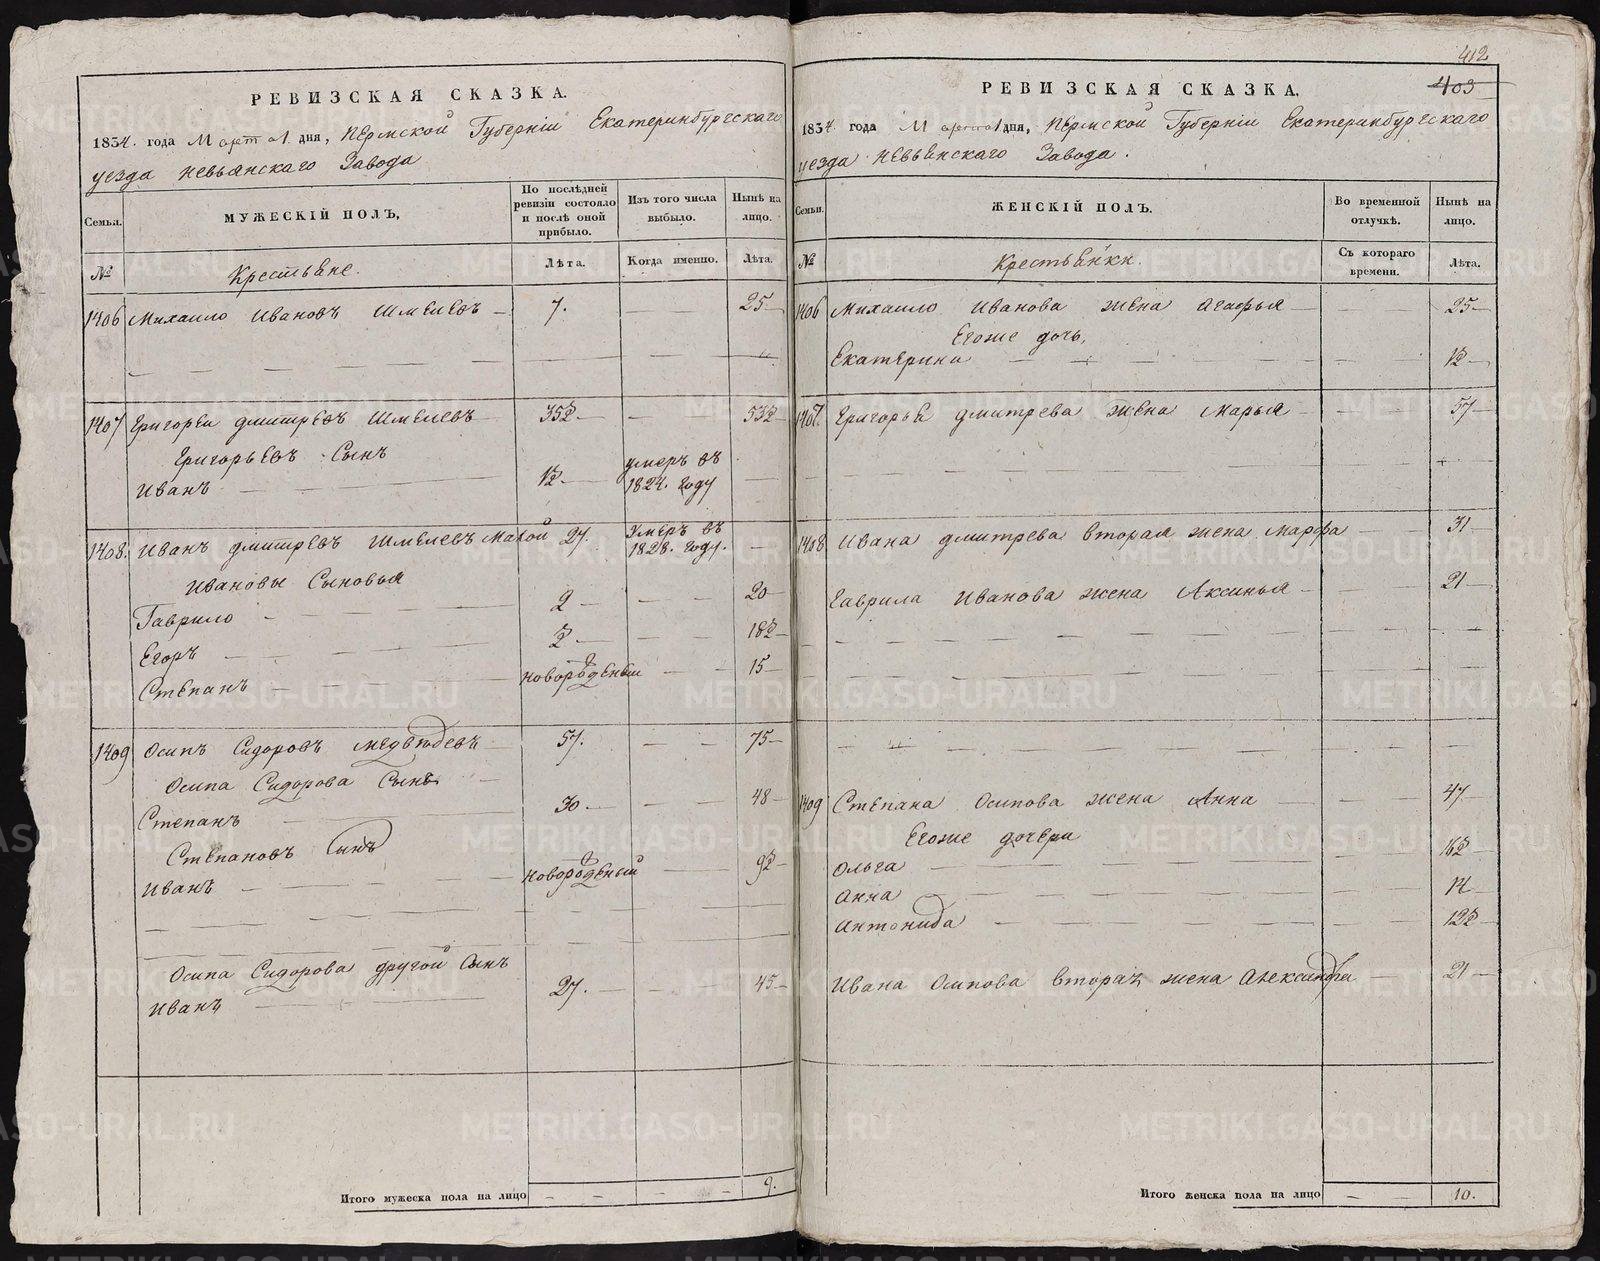 412
403
РЕВИЗСКАЯ СКАЗКА.
1834. года Марта 1 дня, Пермской Губернiи Екатеринбургскаго
уезда Невьянскаго Завода
Семьи.
МУЖЕСКIЙ ПОЛЪ,
По послѣдней ревизiи состояло и послѣ оной прибыло.
Изъ того числа выбыло.
Нынѣ на лицо.
№
Крестьяне.
Лѣта.
Когда именно.
Лѣта.
1406 Михаило Ивановъ Шмелевъ 7. 25
1407 Григорей Дмитревъ Шмелевъ 35½ 53½
Григорьевъ Сынъ
Иванъ ½ умеръ въ 1824. году
1408. Иванъ Дмитревъ Шмелевъ Малой 27. Умеръ въ 1828. году.
Ивановы Сыновья
Гаврило 2 20
Егоръ ½ 18½
Степанъ новорожденный 15
1409 Осипъ Сидоровъ Медвѣдевъ 57. 75
Осипа Сидорова Сынъ
Степанъ 30 48
Степановъ Сынъ
Иванъ новорожденный 9½
Осипа Сидорова другой Сынъ
Иванъ 27. 45
Итого мужеска пола на лицо 9.
РЕВИЗСКАЯ СКАЗКА,
1834. года Марта 1 дня, Пермской Губернiи Екатеринбургскаго
уезда Невьянскаго Завода.
Семьи.
ЖЕНСКIЙ ПОЛЪ.
Во временной отлучкѣ.
Нынѣ на лицо.
№
Крестьянки.
Съ котораго времени.
Лѣта.
1406 Михаило Иванова жена Агафья 25
Егоже дочь,
Екатерина ½
1407. Григорья Дмитрева жена Марья 57
1408 Ивана Дмитрева вторая жена Марфа 31
Гаврила Иванова жена Аксинья 21
1409 Степана Осипова жена Анна 47
Егоже дочери
Ольга 16½
Анна 14
Антонида 12½
Ивана Осипова вторая жена Александра 21
Итого женска пола на лицо 10.
METRIKI.GASO-URAL.RU